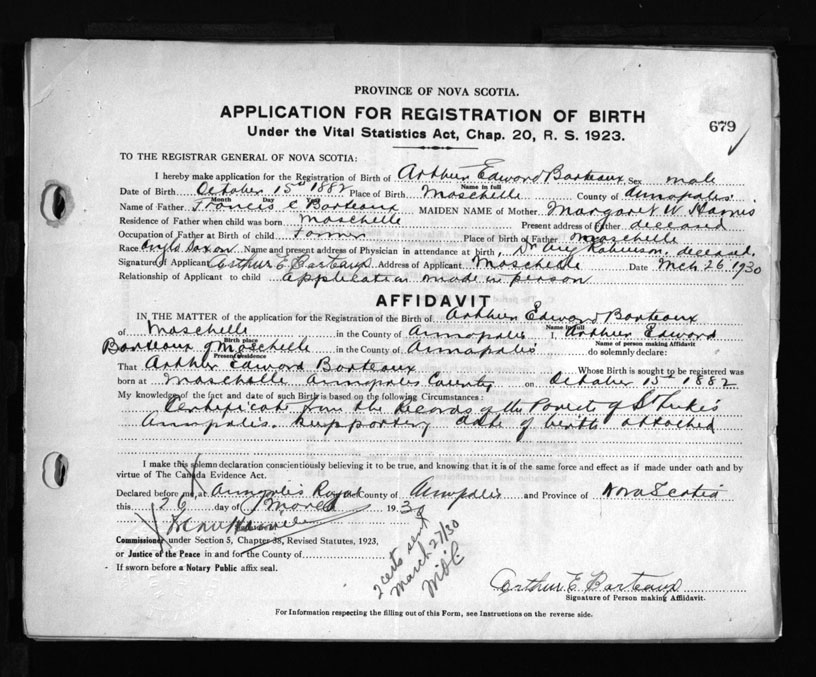 PROVINCE OF NOVA SCOTIA.
APPLICATION FOR REGISTRATION OF BIRTH
Under the Vital Statistics Act, Chap. 20, R. S. 1923.
679
TO THE REGISTRAR GENERAL OF NOVA SCOTIA:
I hereby make application for the Registration of Birth of Arthur Edward Barteaux Sex male
Name in full
Date of Birth October 15th 1882 Place of Birth Moschelle County of Annapolis
Month Day
Name of Father Francis C Barteaux MAIDEN NAME of Mother Margaret W
Residence of Father when child was born Moschelle Present address of Father deceased
Occupation of Father at Birth of child Farmer Place of birth of Father Moschelle
Race Anglo Saxon Name and present address of Physician in attendance at birth, Dr Robinson, deceased.
Signature of Applicant Arthur E Barteaux Address of Applicant Moschelle Date Mch 26 1930
Relationship of Applicant to child application made in person
AFFIDAVIT
IN THE MATTER of the application for the Registration of the Birth of Arthur Edward Barteaux
Name in full
of Moschelle in the County of Annapolis I, Arthur Edward
Birth place Name of person making Affidavit
Barteaux of Moschelle in the County of Annapolis do solemnly declare:
Present residence
That Arthur Edward Barteaux Whose Birth is sought to be registered was
born at Moschelle Annapolis County on October 15th 1882
My knowledge of the fact and date of such Birth is based on the following Circumstances:
Certificate from the Records of the Parish of St Luke's
Annapolis. supporting date of birth attached
I make this solemn declaration conscientiously believing it to be true, and knowing that it is of the same force and effect as if made under oath and by
virtue of The Canada Evidence Act.
Declared before me, at Annapolis Royal County of Annapolis and Province of Nova Scotia
this 26 day of March 1930
Commissioner under Section 5, Chapter 38, Revised Statutes, 1923,
or Justice of the Peace in and for the County of
If sworn before a Notary Public affix seal.
2 certs sent
March 27/30
Arthur E Barteaux
Signature of Person making Affidavit.
For Information respecting the filling out of this Form, see Instructions on the reverse side.